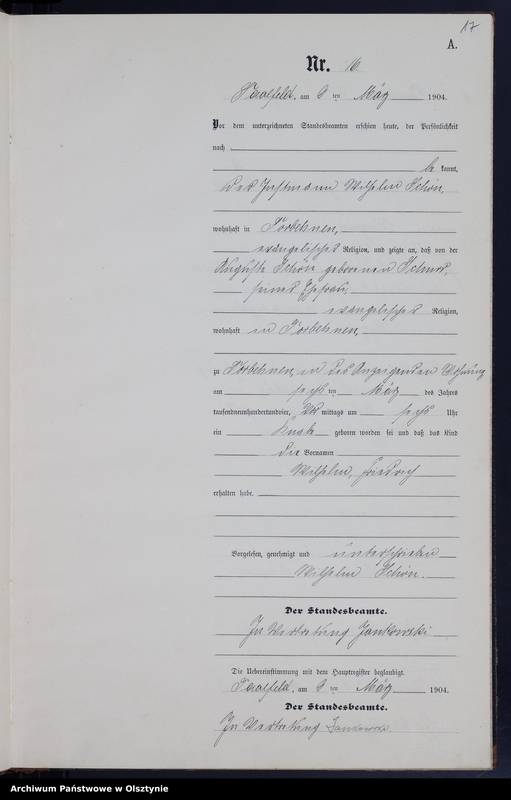 17
A.
Nr. 16.
Saalfeld, am 6 ten März 1904.
Vor dem unterzeichneten Standesbeamten erschien heute, der Persönlichkeit
nach
be kannt,
der Instmann Wilhelm Schön,
wohnhaft in Torbehnen,
evangelischer Religion, und zeigte an, daß von der
Auguste Schön geborenen
seiner Ehefrau,
evangelischer Religion,
wohnhaft in Torbehnen,
zu Torbehnen, in des Anzeigenden Wohnung
am sechs ten März des Jahres
tausendneunhundertundvier, Vor mittags um sechs Uhr
ein Knabe geboren worden sei und daß das Kind
die Vornamen
Wilhelm, Friedrich
erhalten habe.
Vorgelesen, genehmigt und unterschrieben
Wilhelm Schön.
Der Standesbeamte.
In Vertretung Jankowski
Die Uebereinstimmung mit dem Hauptregister beglaubigt.
Saalfeld, am 6 ten März 1904.
Der Standesbeamte.
In Vertretung Jankowski
Archiwum Państwowe w Olsztynie